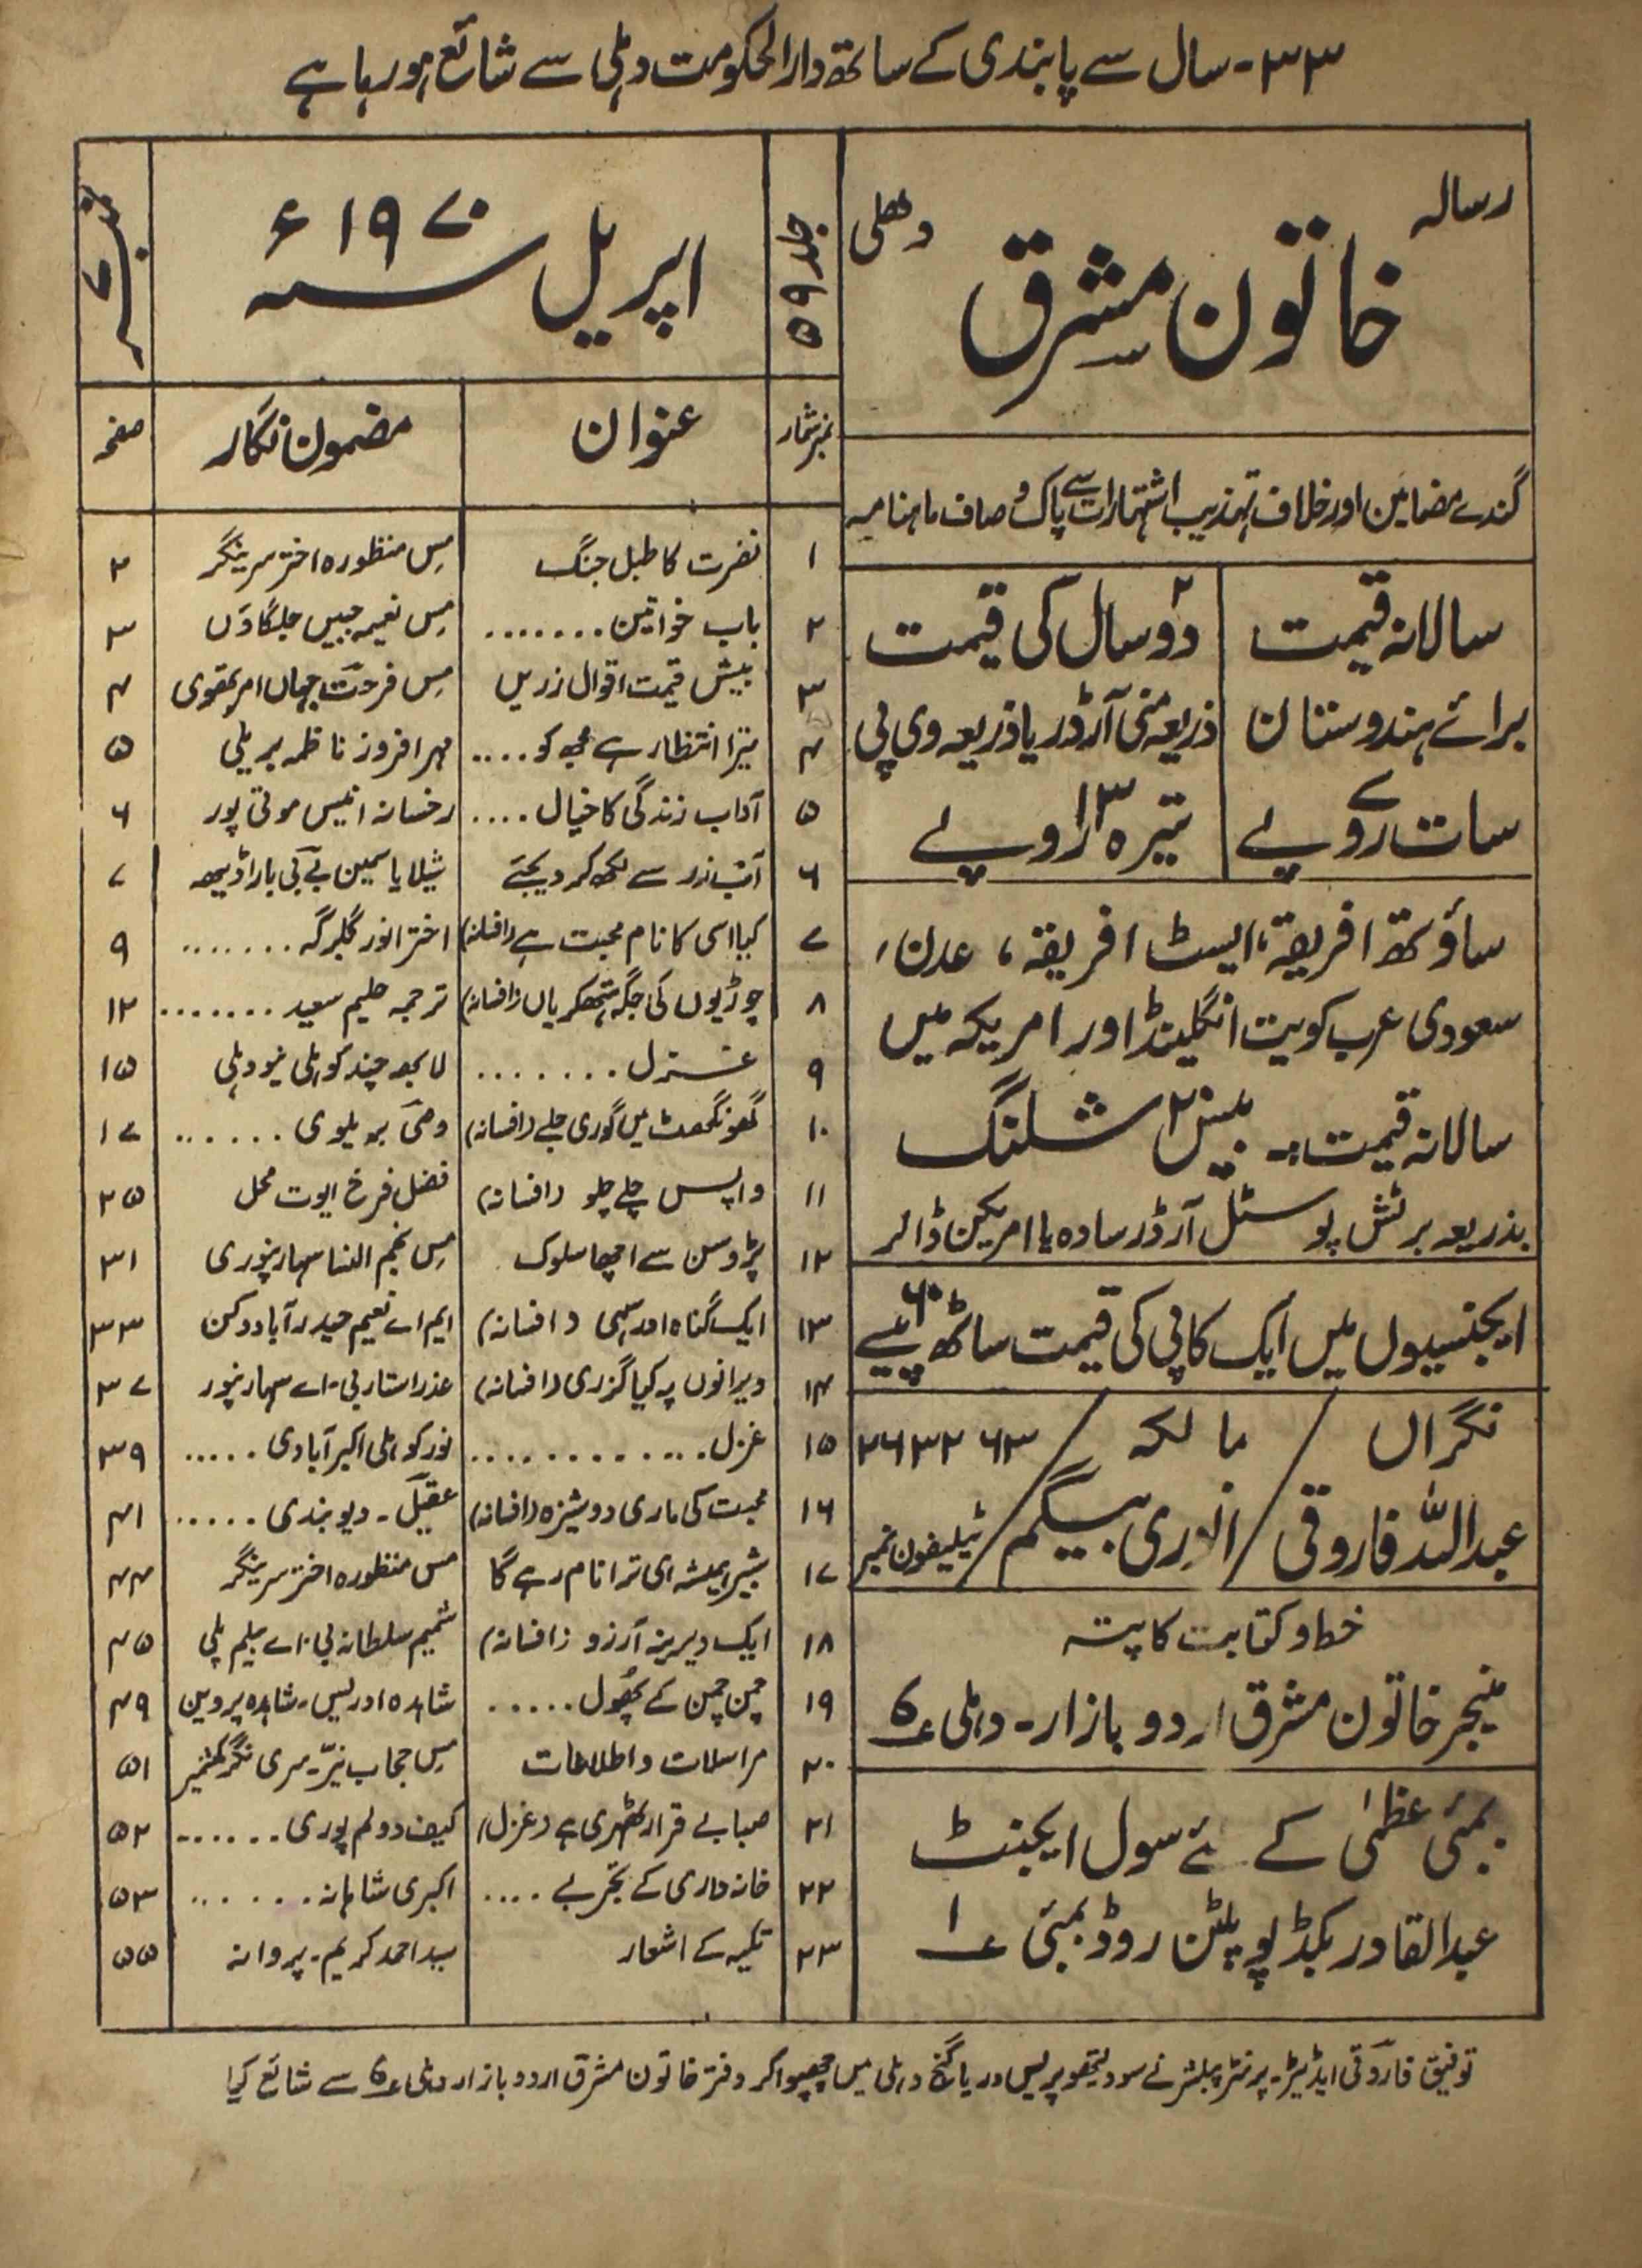 ۳۳۔ سال سے پابندی کے ساتھ دارالحکومت دہلی سے شائع ہو رہا ہے
رسالہ
خاتون مشرق دھلی
جلد ۵۹
اپریل سنہ ۱۹۷۰ء
نمبر ۷
گندے مضامین اور خلاف تہذیب اشتہارات سے پاک و صاف ماہنامہ
سالانہ قیمت
برائے ہندوستان
سات ۷ روپے
دو ۲ سال کی قیمت
ذریعہ منی آرڈر یا ذریعہ وی پی
تیرہ ۱۳ روپے
ساؤتھ افریقہ، ایسٹ افریقہ، عدن،
سعودی عرب کویت انگلینڈ اور امریکہ میں
سالانہ قیمت :۔ بیس ۲۰ شلنگ
بذریعہ برٹش پوسٹل آرڈر سادہ یا امریکن ڈالر
ایجنسیوں میں ایک کاپی کی قیمت ساٹھ ۶۰ پیسے
نگراں / مالکہ / ۲۶۳۲۶۳
عبداللہ فاروقی / انوری بیگم / ٹیلیفون نمبر
خط و کتابت کا پتہ
منیجر خاتون مشرق اردو بازار۔ دہلی ؏۶
بمبئی عظمیٰ کے لئے سول ایجنٹ
عبدالقادر بکڈپو پلٹن روڈ بمبئی ؏۱
نمبر شمار عنوان مضمون نگار صفحہ
۱ نصرت کا طبل جنگ مس منظورہ اختر سرینگر ۲
۲ باب خواتین ....... مس نعیمہ جبیں جلگاؤں ۳
۳ بیش قیمت اقوال زریں مس فرحت جہاں امرتقوی ۴
۴ تیرا انتظار ہے مجھ کو .... مہر افروز ناظمہ بریلی ۵
۵ آداب زندگی کا خیال .... رخسانہ انیس موتی پور ۶
۶ آپ اندر سے لکھ کر دیجئے شیلا یاسمین بے بی باراڈیھ ۷
۷ کیا اسی کا نام محبت ہے (افسانہ) اختر انور گلبرگہ ....... ۹
۸ چوڑیوں کی جگہ ہتھکڑیاں (افسانہ) ترجمہ حلیم سعید ....... ۱۲
۹ غزل ....... لابھ چند کوہلی نیو دہلی ۱۵
۱۰ گھونگھٹ میں گوری جلے (افسانہ) وصی بریلوی ...... ۱۷
۱۱ واپس چلے چلو (افسانہ) فضل فرخ ایوت محل ۲۵
۱۲ پڑوسن سے اچھا سلوک مس نجم النسا سہارنپوری ۳۱
۱۳ ایک گناہ اور سہی (افسانہ) ایم اے نعیم حیدرآباد دکن ۳۳
۱۴ ویرانوں پہ کیا گزری (افسانہ) عذرا ستار بی۔اے سہارنپور ۳۷
۱۵ غزل ............ نور کوہلی اکبر آبادی ..... ۳۹
۱۶ محبت کی ماری دوشیزہ (افسانہ) عقیل۔ دیوبندی ..... ۴۱
۱۷ بشیر ہمیشہ ہی ترا نام رہے گا مس منظورہ اختر سرینگر ۴۴
۱۸ ایک دیرینہ آرزو (افسانہ) شمیم سلطانہ بی۔اے میلم پلی ۴۵
۱۹ چمن چمن کے پھول ..... شاہدہ ادریس۔ شاہدہ پروین ۴۹
۲۰ مراسلات و اطلاعات مس حجاب نیّر۔ سری نگر کشمیر ۵۱
۲۱ صبا بے قرار ٹھہری ہے (غزل) کیف دولم پوری ...... ۵۲
۲۲ خانہ داری کے تجربے .... اکبری شاہانہ ...... ۵۳
۲۳ تکیہ کے اشعار سید احمد کریم۔ پروانہ ۵۵
توفیق فاروقی ایڈیٹر۔ پرنٹر پبلشر نے سودیتھو پریس دریا گنج دہلی میں چھپوا کر دفتر خاتون مشرق اردو بازار دہلی ؏۶ سے شائع کیا